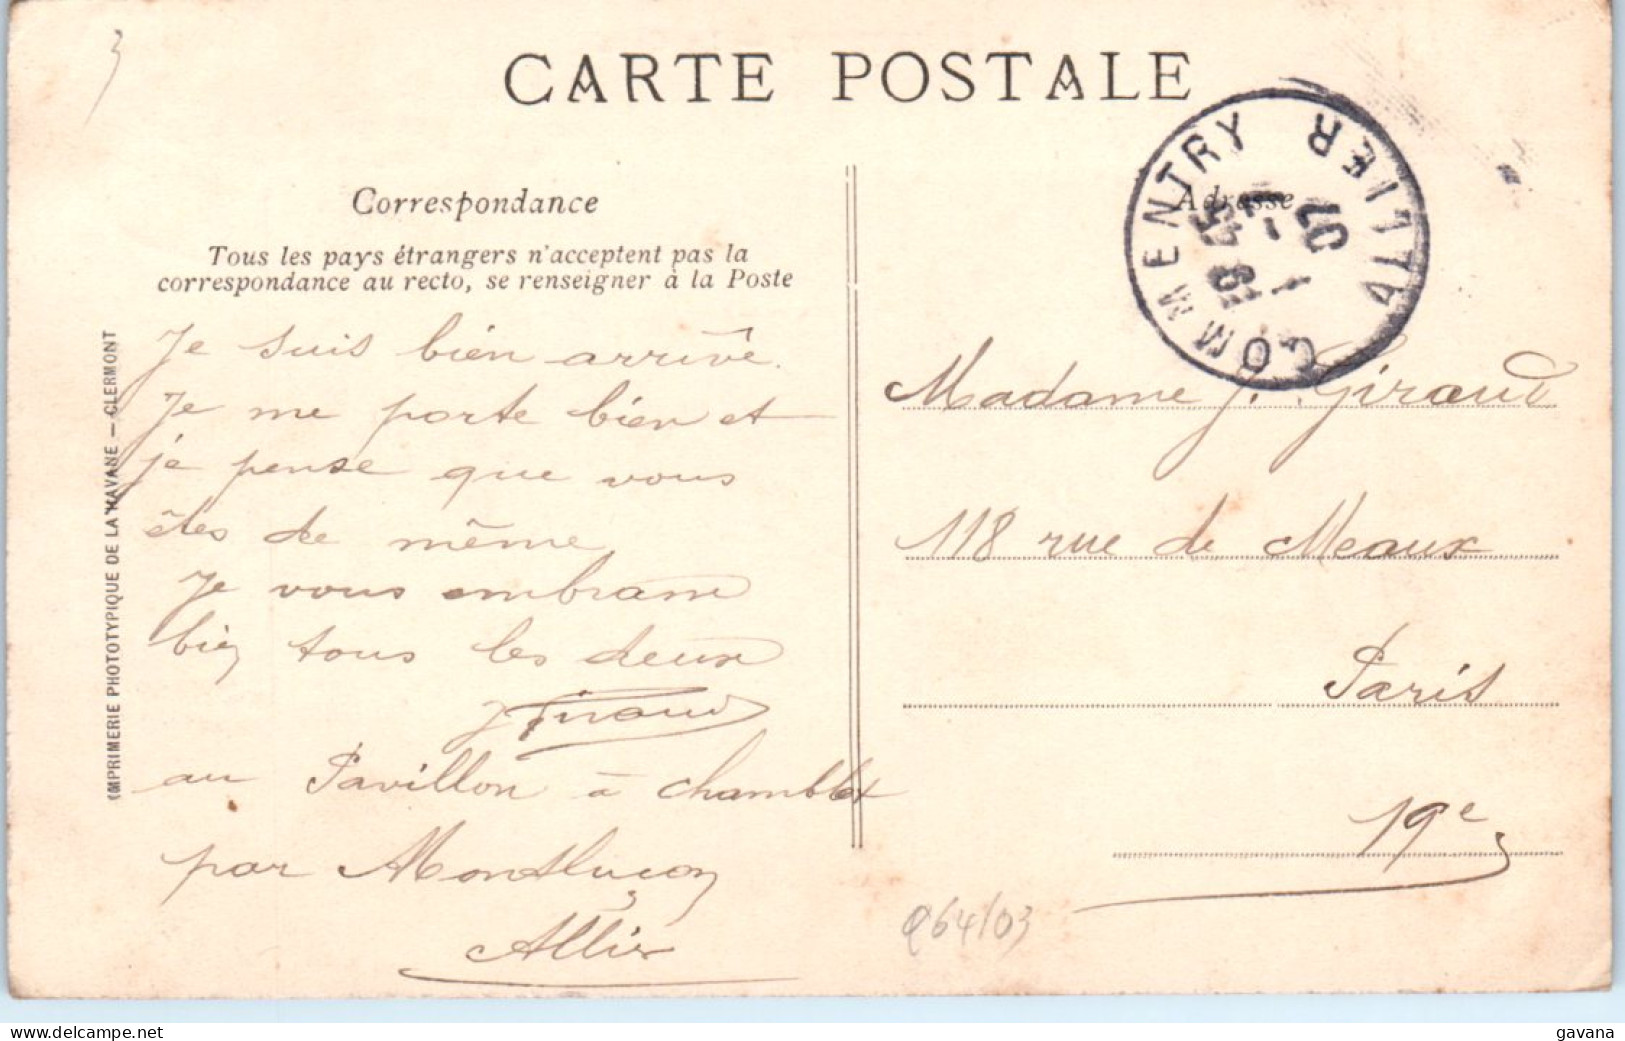 3
CARTE POSTALE
Correspondance
Tous les pays étrangers n'acceptent pas la
correspondance au recto, se renseigner à la Poste
IMPRIMERIE PHOTOTYPIQUE DE LA HAVANE — CLERMONT
Je suis bien arrivé.
Je me porte bien et
je pense que vous
êtes de même
Je vous embrasse
bien tous les deux
J Giraud
au Pavillon à Chamblet
par Montluçon
Allier
Adresse
COMMENTRY
ALLIER
07
Madame J. Giraud
118 rue de Meaux
Paris
19e
Q64/03
gavana